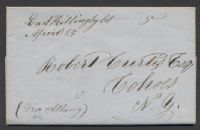 East Killingly Ct 5
April 25
Robert Curtis Esq
Cohoes
N. Y.
(Via Albany)